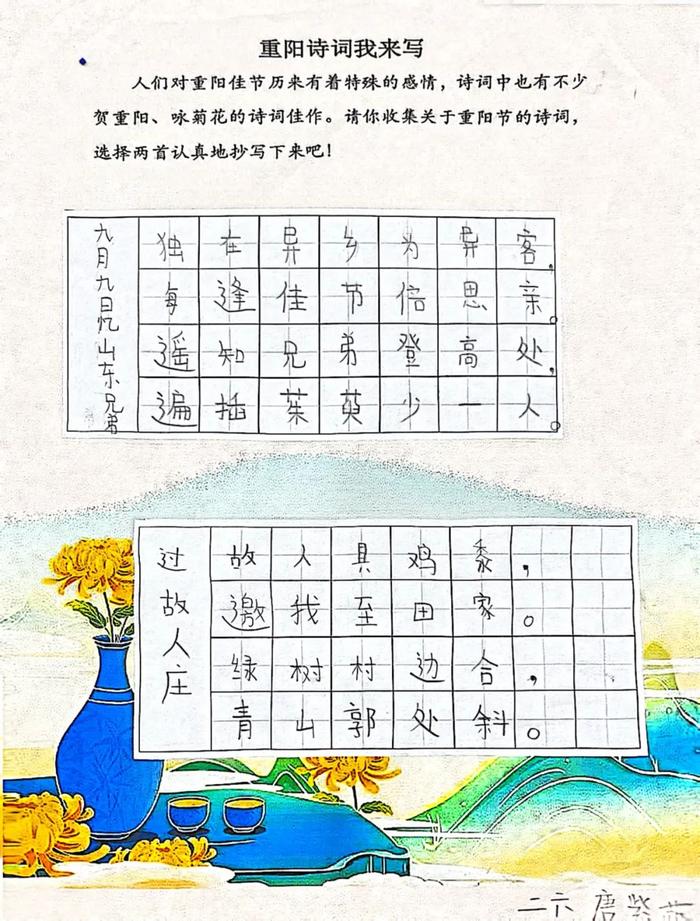 重阳诗词我来写
人们对重阳佳节历来有着特殊的感情，诗词中也有不少
贺重阳、咏菊花的诗词佳作。请你收集关于重阳节的诗词，
选择两首认真地抄写下来吧！
九月九日忆山东兄弟
独在异乡为异客，
每逢佳节倍思亲。
遥知兄弟登高处，
遍插茱萸少一人。
过故人庄
故人具鸡黍，
邀我至田家。
绿树村边合，
青山郭处斜。
二六 唐紫燕